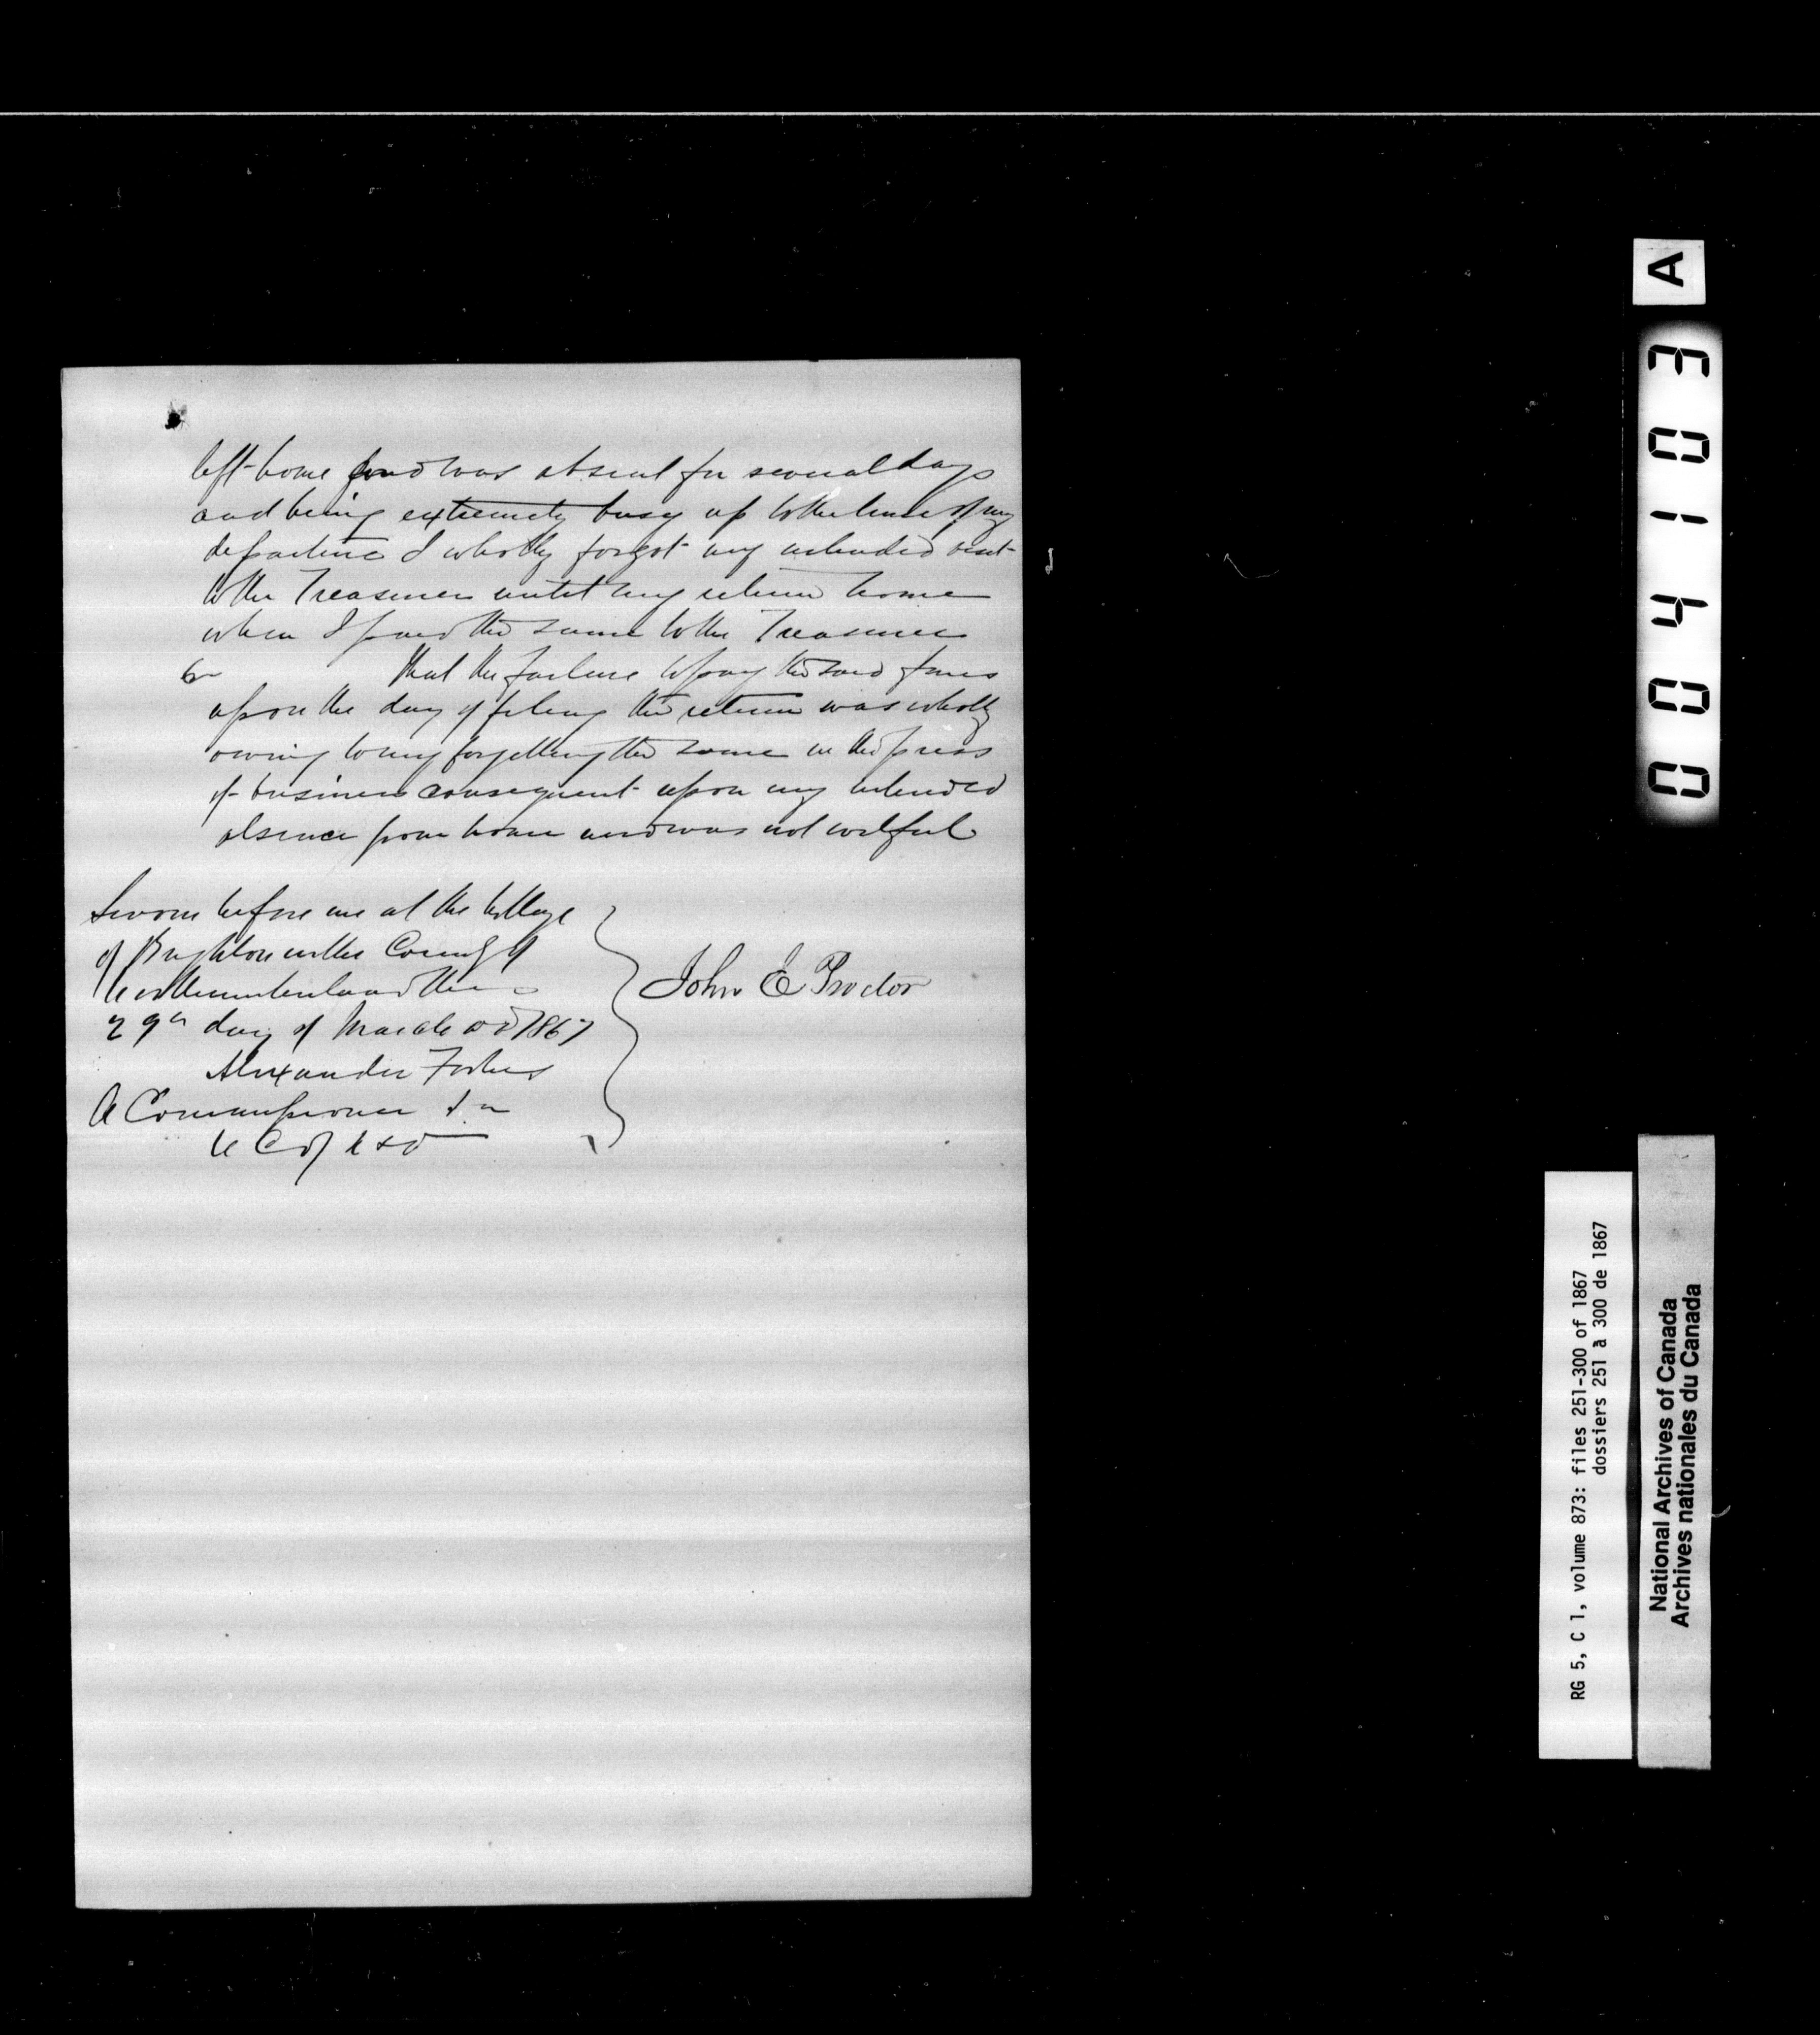 left home and was absent for several days
and being extremely busy up to the time of my
departure I wholly forgot my intended visit
to the Treasurer until my return home
when I paid the same to the Treasurer
6 That the failure to pay the said fines
upon the day of filing the return was wholly
owing to my forgetting the same in the press
of business consequent upon my intended
absence from home and was not wilful
Sworn before me at the Village
of Brighton in the County of
Northumberland this
29th day of March AD 1867
Alexander Forbes
A Commissioner &c
U C of N & D
John E Proctor
A
004103
RG 5, C 1, volume 873: files 251-300 of 1867
dossiers 251 à 300 de 1867
National Archives of Canada
Archives nationales du Canada